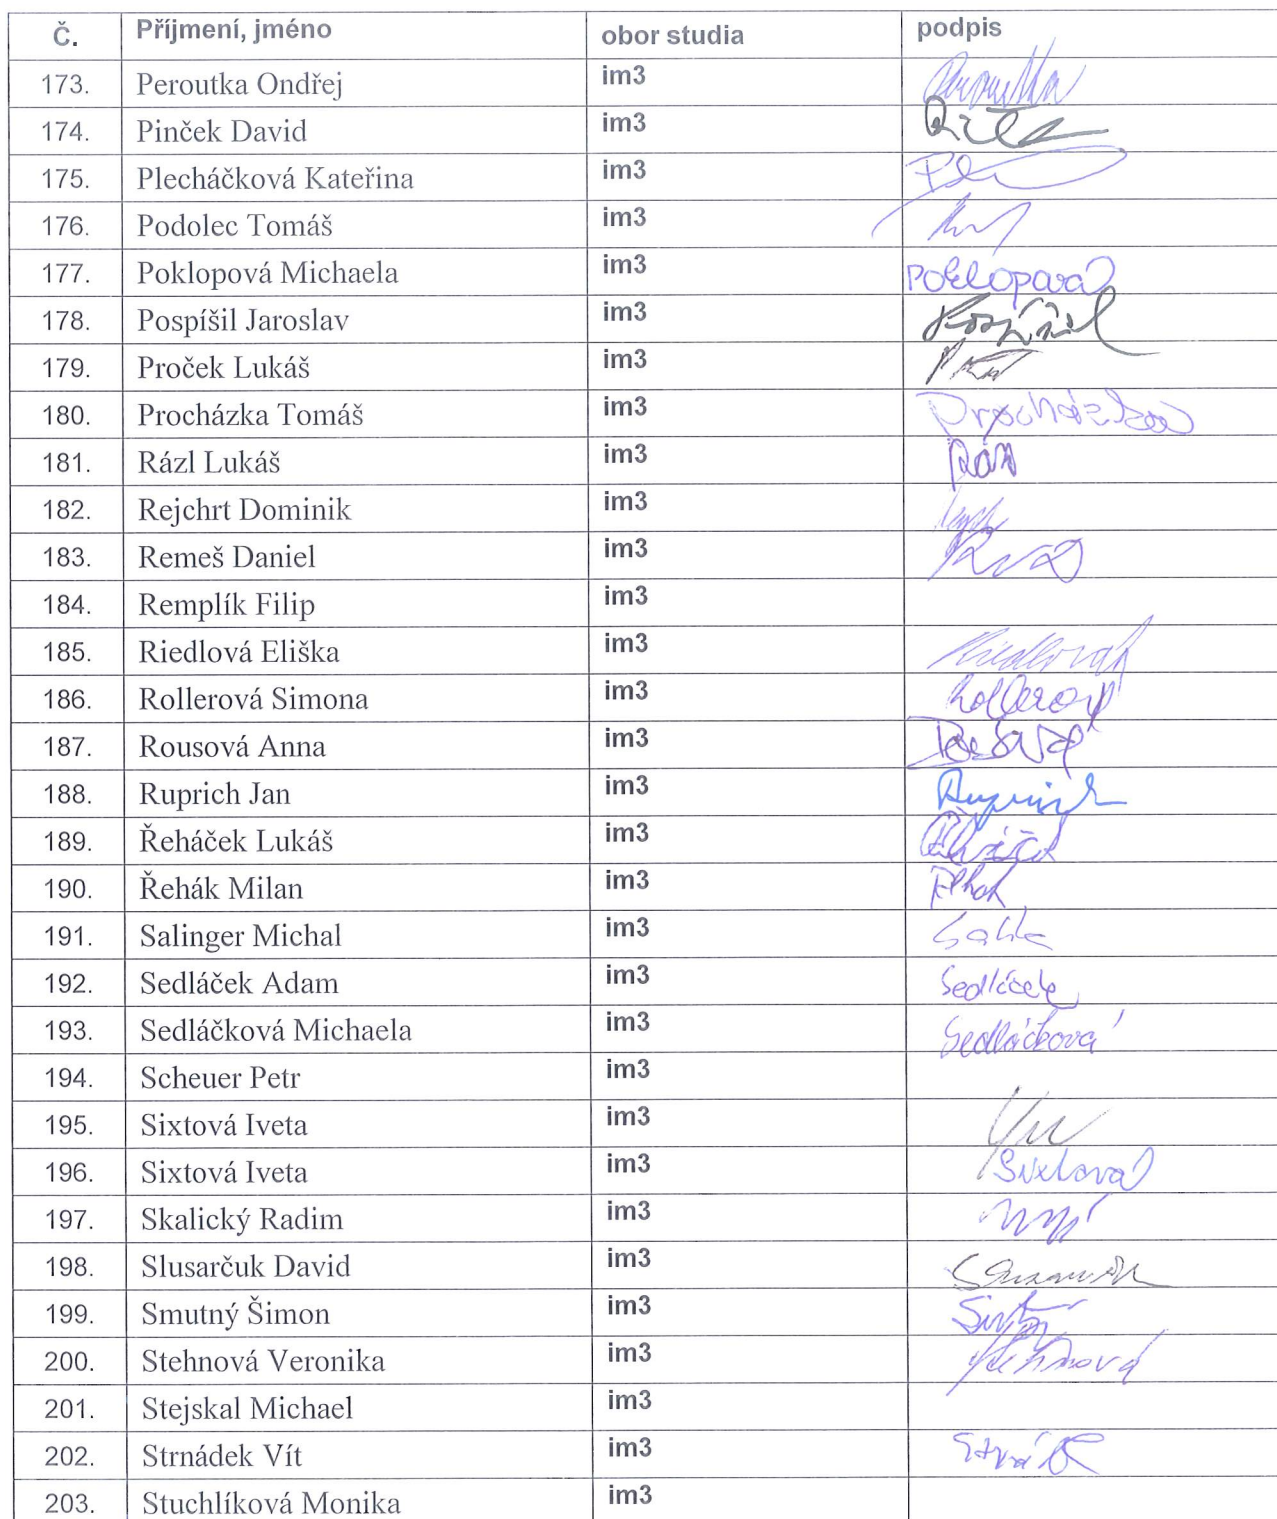 Č. Příjmení, jméno obor studia podpis
173. Peroutka Ondřej im3 Peroutka
174. Pinček David im3
175. Plecháčková Kateřina im3
176. Podolec Tomáš im3
177. Poklopová Michaela im3 Poklopová
178. Pospíšil Jaroslav im3 Pospíšil
179. Proček Lukáš im3
180. Procházka Tomáš im3 Procházka
181. Rázl Lukáš im3
182. Rejchrt Dominik im3
183. Remeš Daniel im3
184. Remplík Filip im3
185. Riedlová Eliška im3 Riedlová
186. Rollerová Simona im3 Rollerová
187. Rousová Anna im3
188. Ruprich Jan im3 Ruprich
189. Řeháček Lukáš im3
190. Řehák Milan im3
191. Salinger Michal im3
192. Sedláček Adam im3 Sedláček
193. Sedláčková Michaela im3 Sedláčková
194. Scheuer Petr im3
195. Sixtová Iveta im3
196. Sixtová Iveta im3 Sixtová
197. Skalický Radim im3
198. Slusarčuk David im3
199. Smutný Šimon im3
200. Stehnová Veronika im3 Stehnová
201. Stejskal Michael im3
202. Strnádek Vít im3
203. Stuchlíková Monika im3